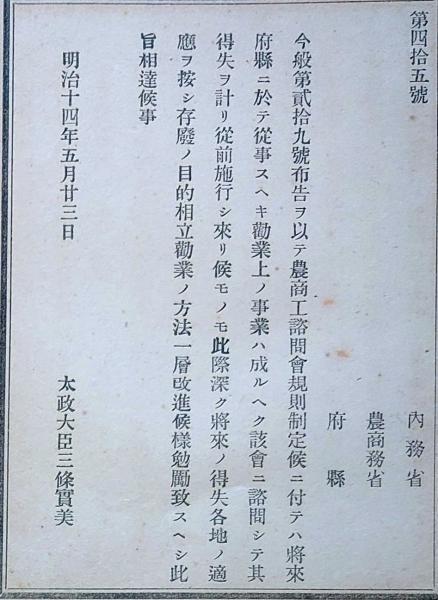 第四拾五號
內務省
農商務省
府縣
今般第貳拾九號布告ヲ以テ農商工諮問會規則制定候ニ付テハ將來
府縣ニ於テ從事スヘキ勸業上ノ事業ハ成ルヘク該會ニ諮問シテ其
得失ヲ計リ從前施行シ來リ候モノモ此際深ク將來ノ得失各地ノ適
應ヲ按シ存廢ノ目的相立勸業ノ方法一層改進候樣勉勵致スヘシ此
旨相達候事
明治十四年五月廿三日
太政大臣三條實美